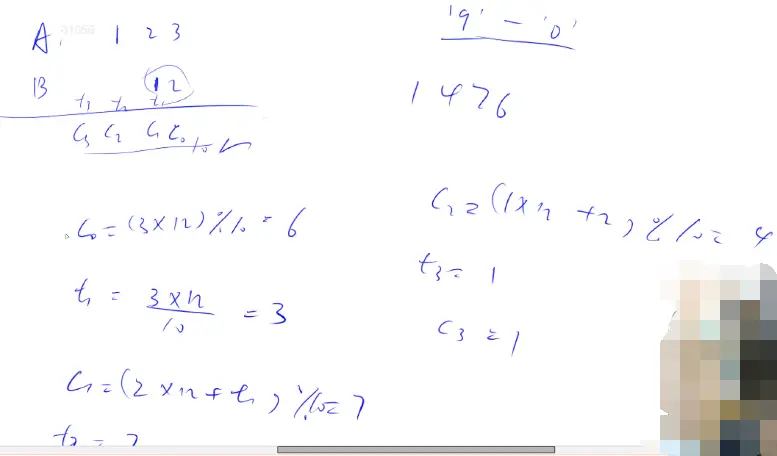 A. 1 2 3
B 12
t3 t2 t1
C3 C2 C1 C0
C0 = (3 x 12) % 10 = 6
t1 = 3 x 12 / 10 = 3
C1 = (2 x 12 + t1) % 10 = 7
t2 = 2
'9' - '0'
1476
C2 = (1 x 12 + t2) % 10 = 4
t3 = 1
C3 = 1